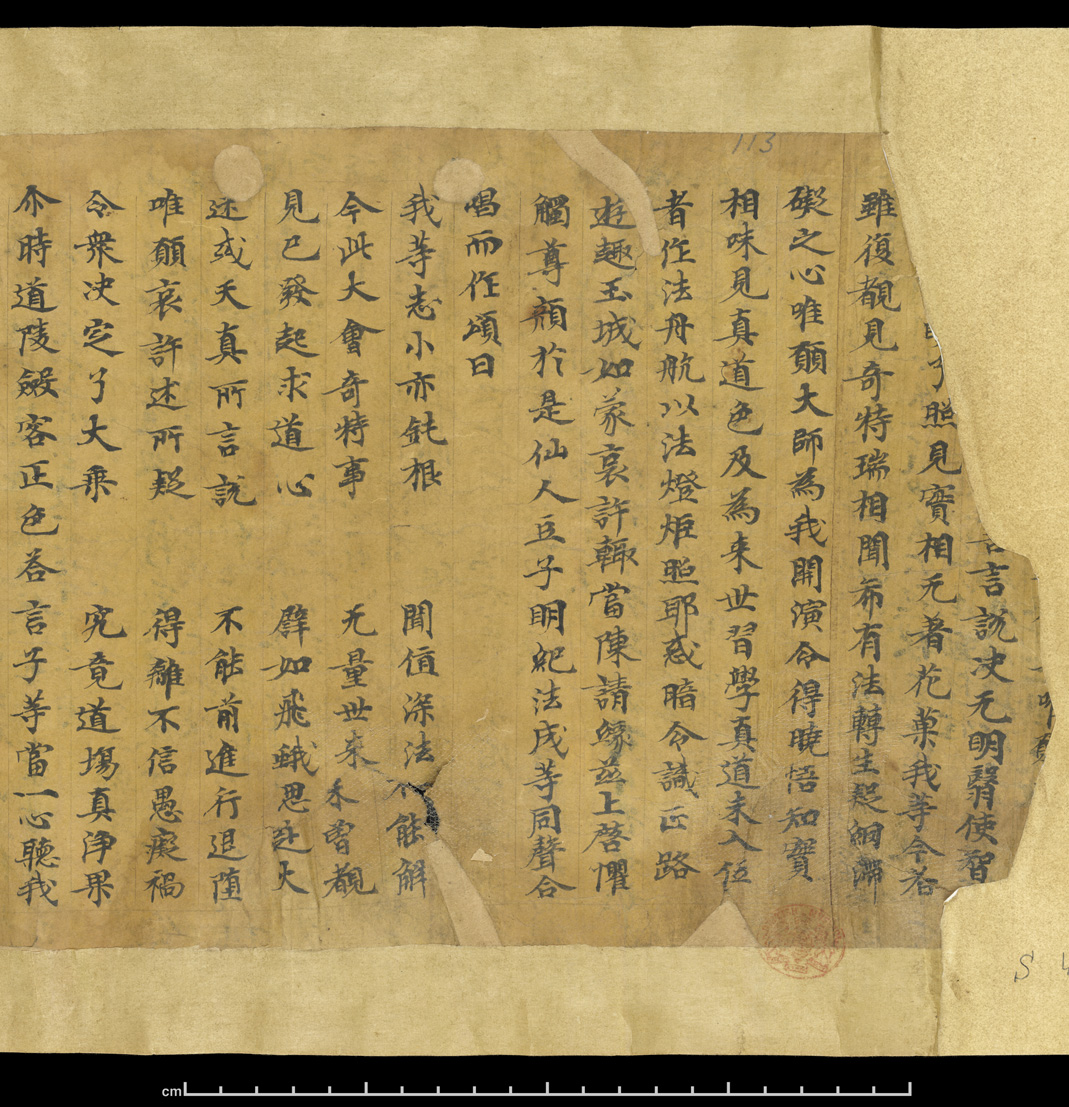 言說決无明翳使智
了照見實相无著花菓我等今者
雖復覩見奇特瑞相聞希有法轉生疑網滯
礙之心唯願大師為我開演令得曉悟知實
相味見真道色及為来世習學真道未入位
者作法舟航以法燈炬照耶惑暗令識正路
遊趣玉城如蒙哀許輙當陳請緣茲上啓懼
觸尊顏於是仙人豆子明紀法成等同聲合
唱而作頌曰
我等志小亦鈍根 聞值深法不能解
今此大會奇特事 无量世来未曾覩
見已發起求道心 辟如飛蛾思赴火
迷或天真所言說 不能前進行退墮
唯願哀許述所疑 得離不信愚癡禍
令衆決定了大乗 究竟道場真淨果
尒時道陵斂容正色荅言子等當一心聽我
113
S
cm